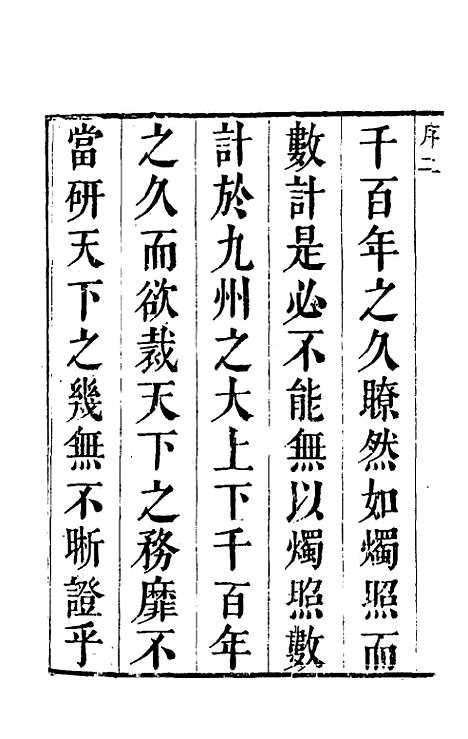 序二
千百年之久瞭然如燭照而
數計是必不能無以燭照數
計於九州之大上下千百年
之久而欲裁天下之務靡不
當研天下之幾無不晰證乎